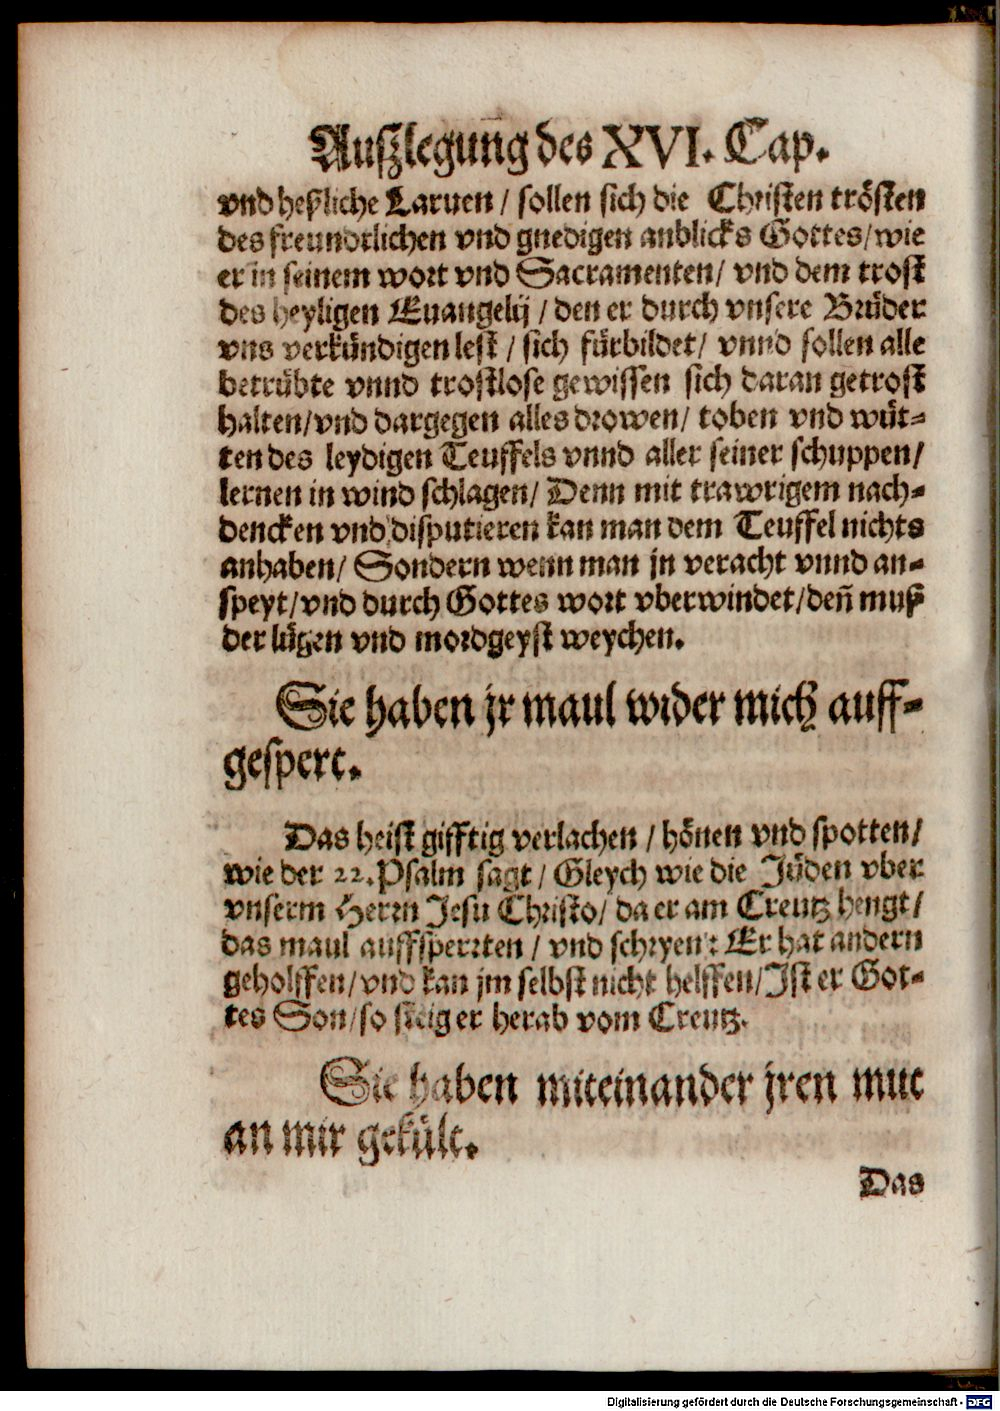 Auſzlegung des XVI. Cap.
vnd heßliche Laruen / sollen sich die Christen trösten
des freundtlichen vnd gnedigen anblicks Gottes / wie
er in seinem wort vnd Sacramenten / vnd dem trost
des heyligen Euangelij / den er durch vnsere Brüder
vns verkündigen lest / sich fürbildet / vnnd sollen alle
betrübte vnnd trostlose gewissen sich daran getrost
halten / vnd dargegen alles drowen / toben vnd wüt-
ten des leydigen Teuffels vnnd aller seiner schuppen /
lernen in wind schlagen / Denn mit trawrigem nach-
dencken vnd disputieren kan man dem Teuffel nichts
anhaben / Sondern wenn man jn veracht vnnd an-
speyt / vnd durch Gottes wort vberwindet / deñ muß
der lügen vnd mordgeyst weychen.
Sie haben jr maul wider mich auff-
gespert.
Das heist gifftig verlachen / hönen vnd spotten /
wie der 22. Psalm sagt / Gleych wie die Jüden vber
vnserm Herrn Jesu Christo / da er am Creutz hengt /
das maul auffsperrten / vnd schryen : Er hat andern
geholffen / vnd kan jm selbst nicht helffen / Ist er Got-
tes Son / so steig er herab vom Creutz.
Sie haben miteinander jren mut
an mir gekült.
Das
Digitalisierung gefördert durch die Deutsche Forschungsgemeinschaft - DFG